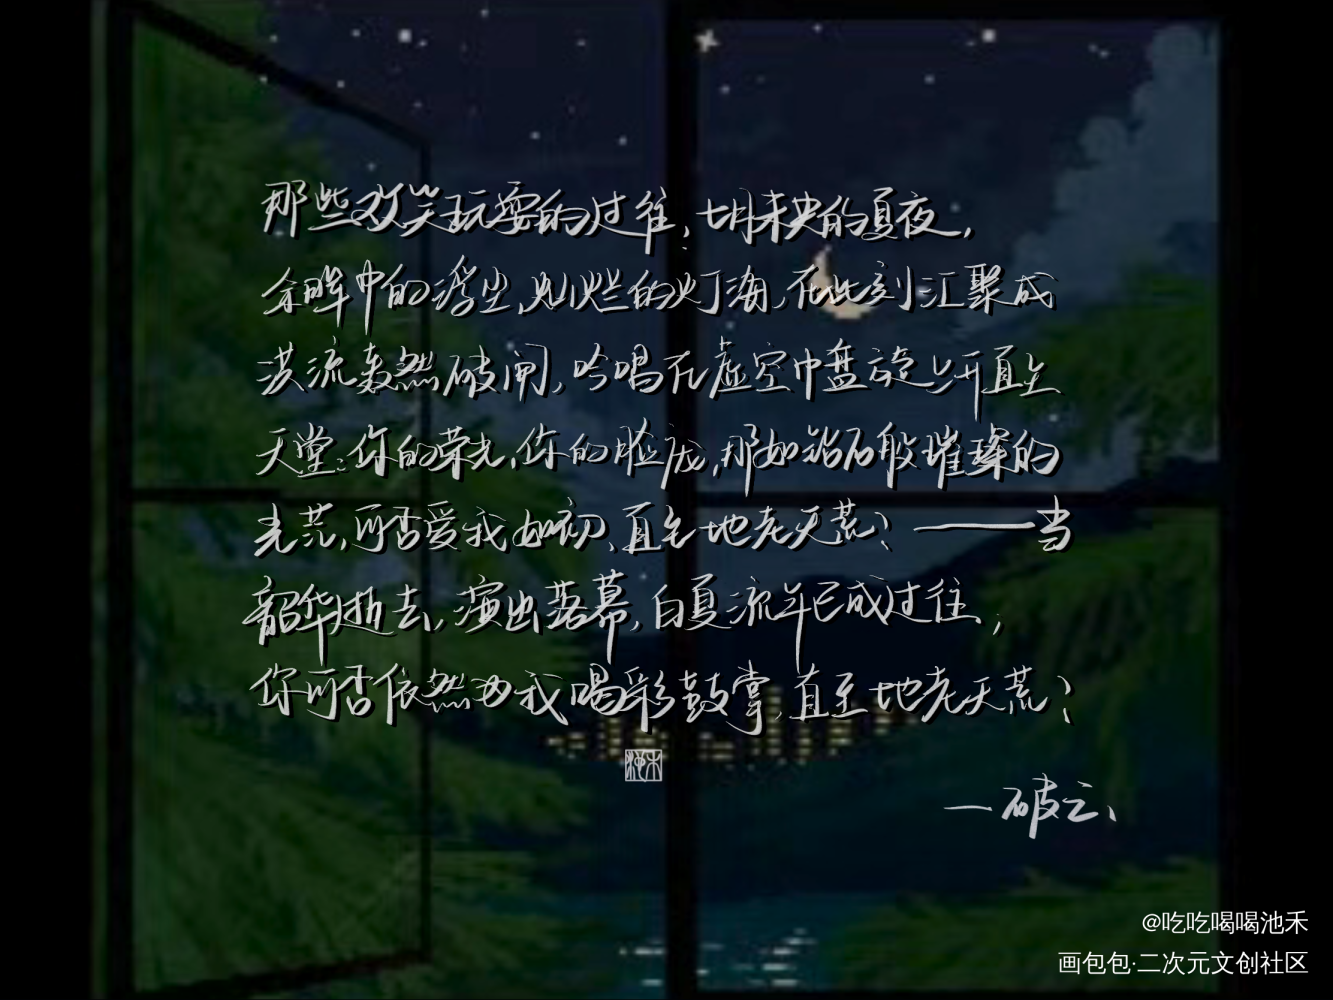 那些欢笑玩耍的过往，七月未央的夏夜，
余晖中的浮尘，灿烂的灯海，在此刻汇聚成
洪流轰然破闸，吟唱在虚空中盘旋上升直至
天堂：你的荣光，你的脸庞，那如钻石般璀璨的
光芒，可否爱我如初，直至地老天荒？——当
韶华逝去，演出落幕，白夏流年已成过往，
你可否依然为我喝彩鼓掌，直至地老天荒？
池禾
—破云、
@吃吃喝喝池禾
画包包·二次元文创社区